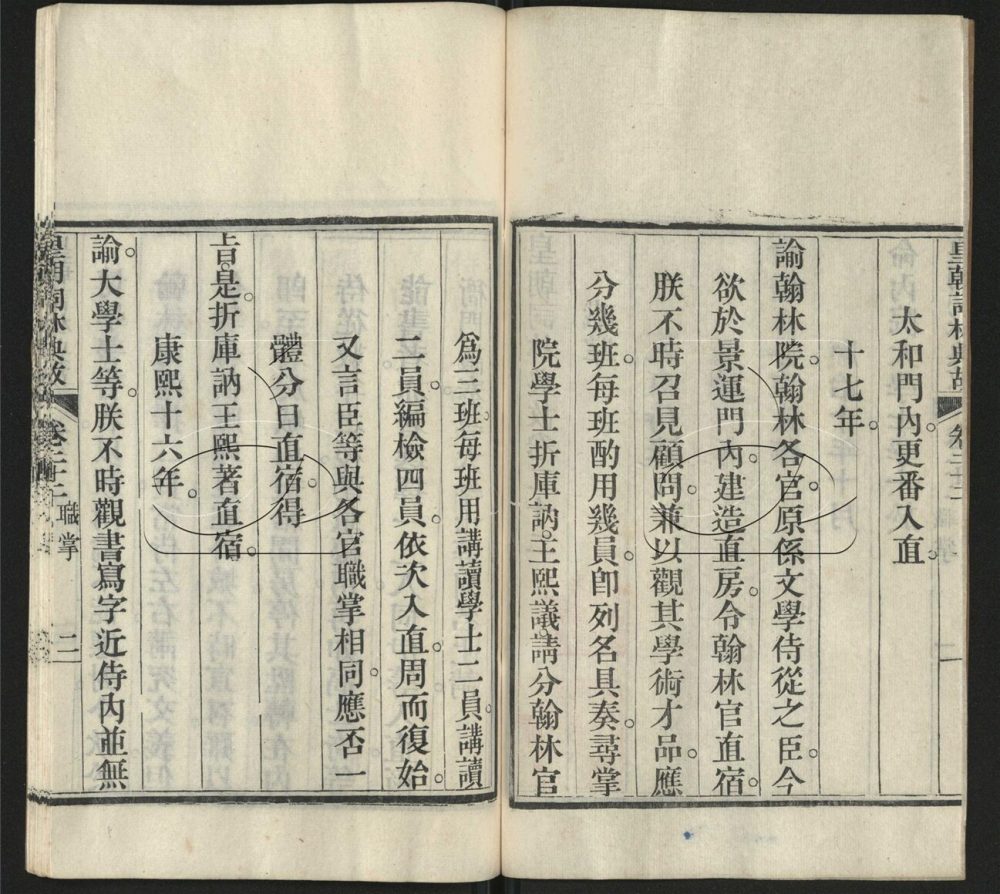 皇朝詞林典故 卷二十二
太和門內更番入直。
十七年。
諭翰林院翰林各官原係文學侍從之臣。今
欲於景運門內。建造直房。令翰林官直宿。
朕不時召見顧問。兼以觀其學術才品。應
分幾班。每班酌用幾員。卽列名具奏。尋掌
院學士折庫訥。王熙議。請分翰林官
為三班。每班用講讀學士二員。講讀
二員。編檢四員。依次入直。周而復始。
又言臣等與各官職掌相同。應否一
體分日直宿。得
旨。是。折庫訥王熙著直宿。
康熙十六年。
諭。大學士等。朕不時觀書寫字。近侍內並無
皇朝詞林典故 卷二十二 職掌 二